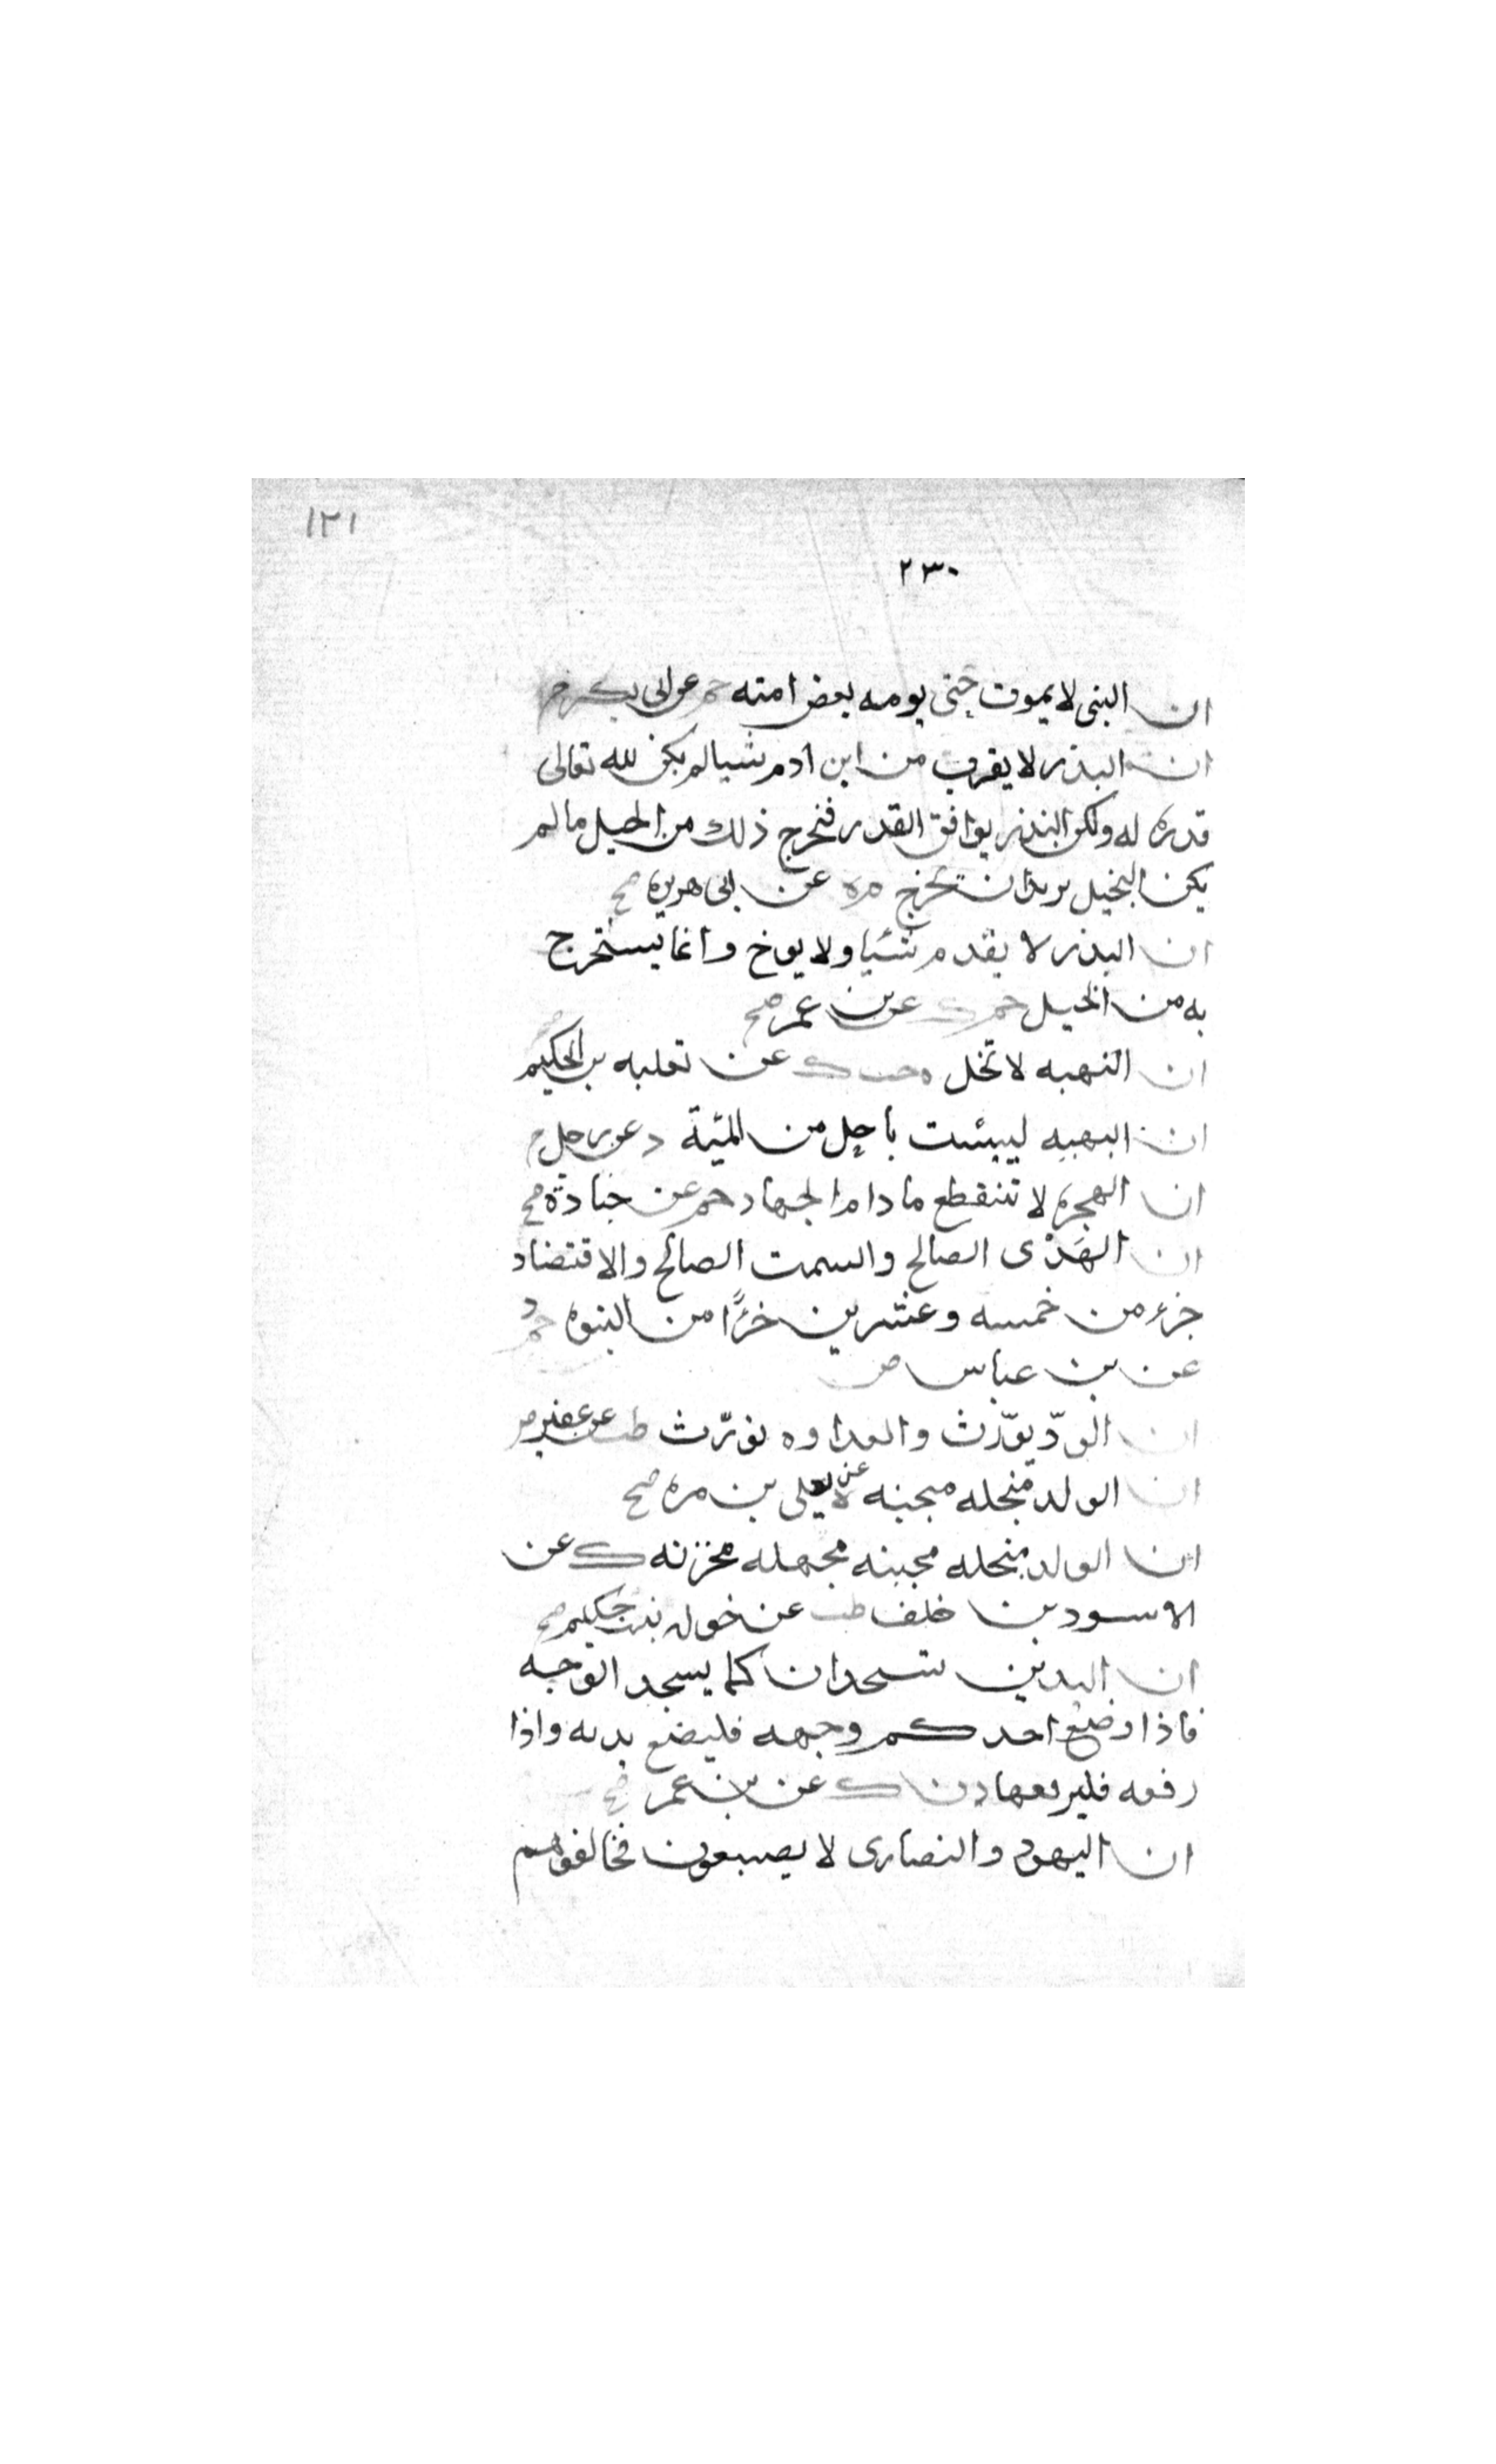 ١٢١
٢٣٠
ان النبى لا يموت حتى يومه بعض امته حم عن ابى بكر
ان النذر لا يقرب من ابن ادم شيا لم يكن لله تعالى
قدره له ولكن النذر يوافق القدر فنخرج ذلك من البخيل ما لم
يكن البخيل يريد ان يخرج م ه عن ابى هريره صح
ان النذر لا يقدم شئيا ولا يوخ وانما يستخرج
به من البخيل حم ك عن بن عمر صح
ان النهبه لا تحل ه حب ك عن ثعلبه بن الحكيم
ان النهبه ليست باحل من الميّة د عن رجل
ان الهجره لا تنقطع ما دام الجهاد حم عن جنادة صح
ان الهَدْى الصالح والسمت الصالح والاقتضاد
جزء من خمسه وعشرين جزًا من النبوه حم د
عن بن عباس
ان الودّ يوّرث والعداوه تورّث طب عن عفير
ان الولد مبخله مجبنه ه عن يعلى بن مره صح
ان الولد مبخله مجبنه مجهله محزنه ك عن
الاسود بن خلف طب عن خوله بنت حكيم صح
ان اليدين تسجدان كما يسجد الوجه
فاذا وضع احدكم وجهه فليضع يديه واذا
رفعه فليرفعها د ن ك عن بن عمر صح
ان اليهود والنصارى لا يصبغون فخالفوهم